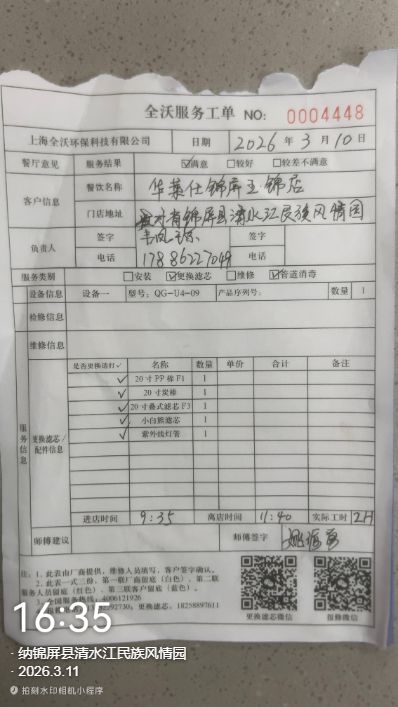 全沃服务工单 NO: 0004448
上海全沃环保科技有限公司 日期 2026年3月10日
餐厅意见 服务结果 ☑满意 □较好 □较差不满意
客户信息 餐饮名称 华莱仕锦屏王锦店
门店地址 锦屏县清水江民族风情园
负责人 签字 签字
电话 17886227049 电话
服务类别 □安装 ☑更换滤芯 □维修 ☑管道消毒
设备信息 设备一 型号: QG-U4-09 产品序列号: 数量 1
检修信息
维修信息
服务信息
更换滤芯/配件信息
是否更换请打✓ 名称 数量 单价 合计 备注
✓ 20寸PP棉F1 1
✓ 20寸炭棒 1
✓ 20寸叠式滤芯F3 1
✓ 小白熊滤芯 1
✓ 紫外线灯管 1
进店时间 9:35 离店时间 11:40 实际工时 2H
师傅建议 师傅签字
注: 1.此表由厂商提供,维修人员填写,客户签字确认。
2.此表一式三份,第一联厂商留底(白色),第二联
服务人员留底(红色),第三联客户留底(蓝色)。
服务热线: 4006121926
92730; 更换滤芯, 18258897611
更换滤芯微信 报修微信
16:35
· 纳锦屏县清水江民族风情园
· 2026.3.11
拍刻水印相机小程序